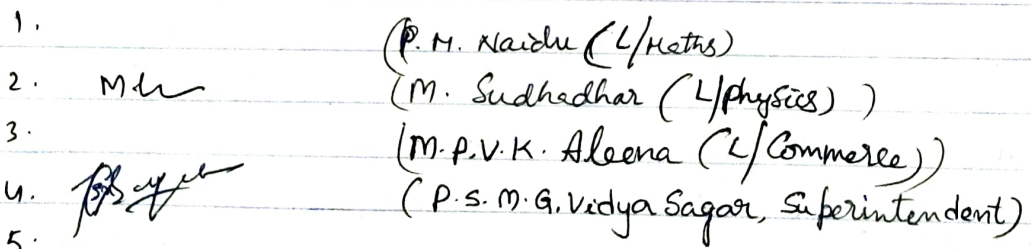 1. (P. M. Naidu (L/Maths)
2. (M. Sudhadhar (L/physics) )
3. (M.P.V.K. Aleena (L/Commerce))
4. (P.S.M.G. Vidya Sagar, Superintendent)
5.